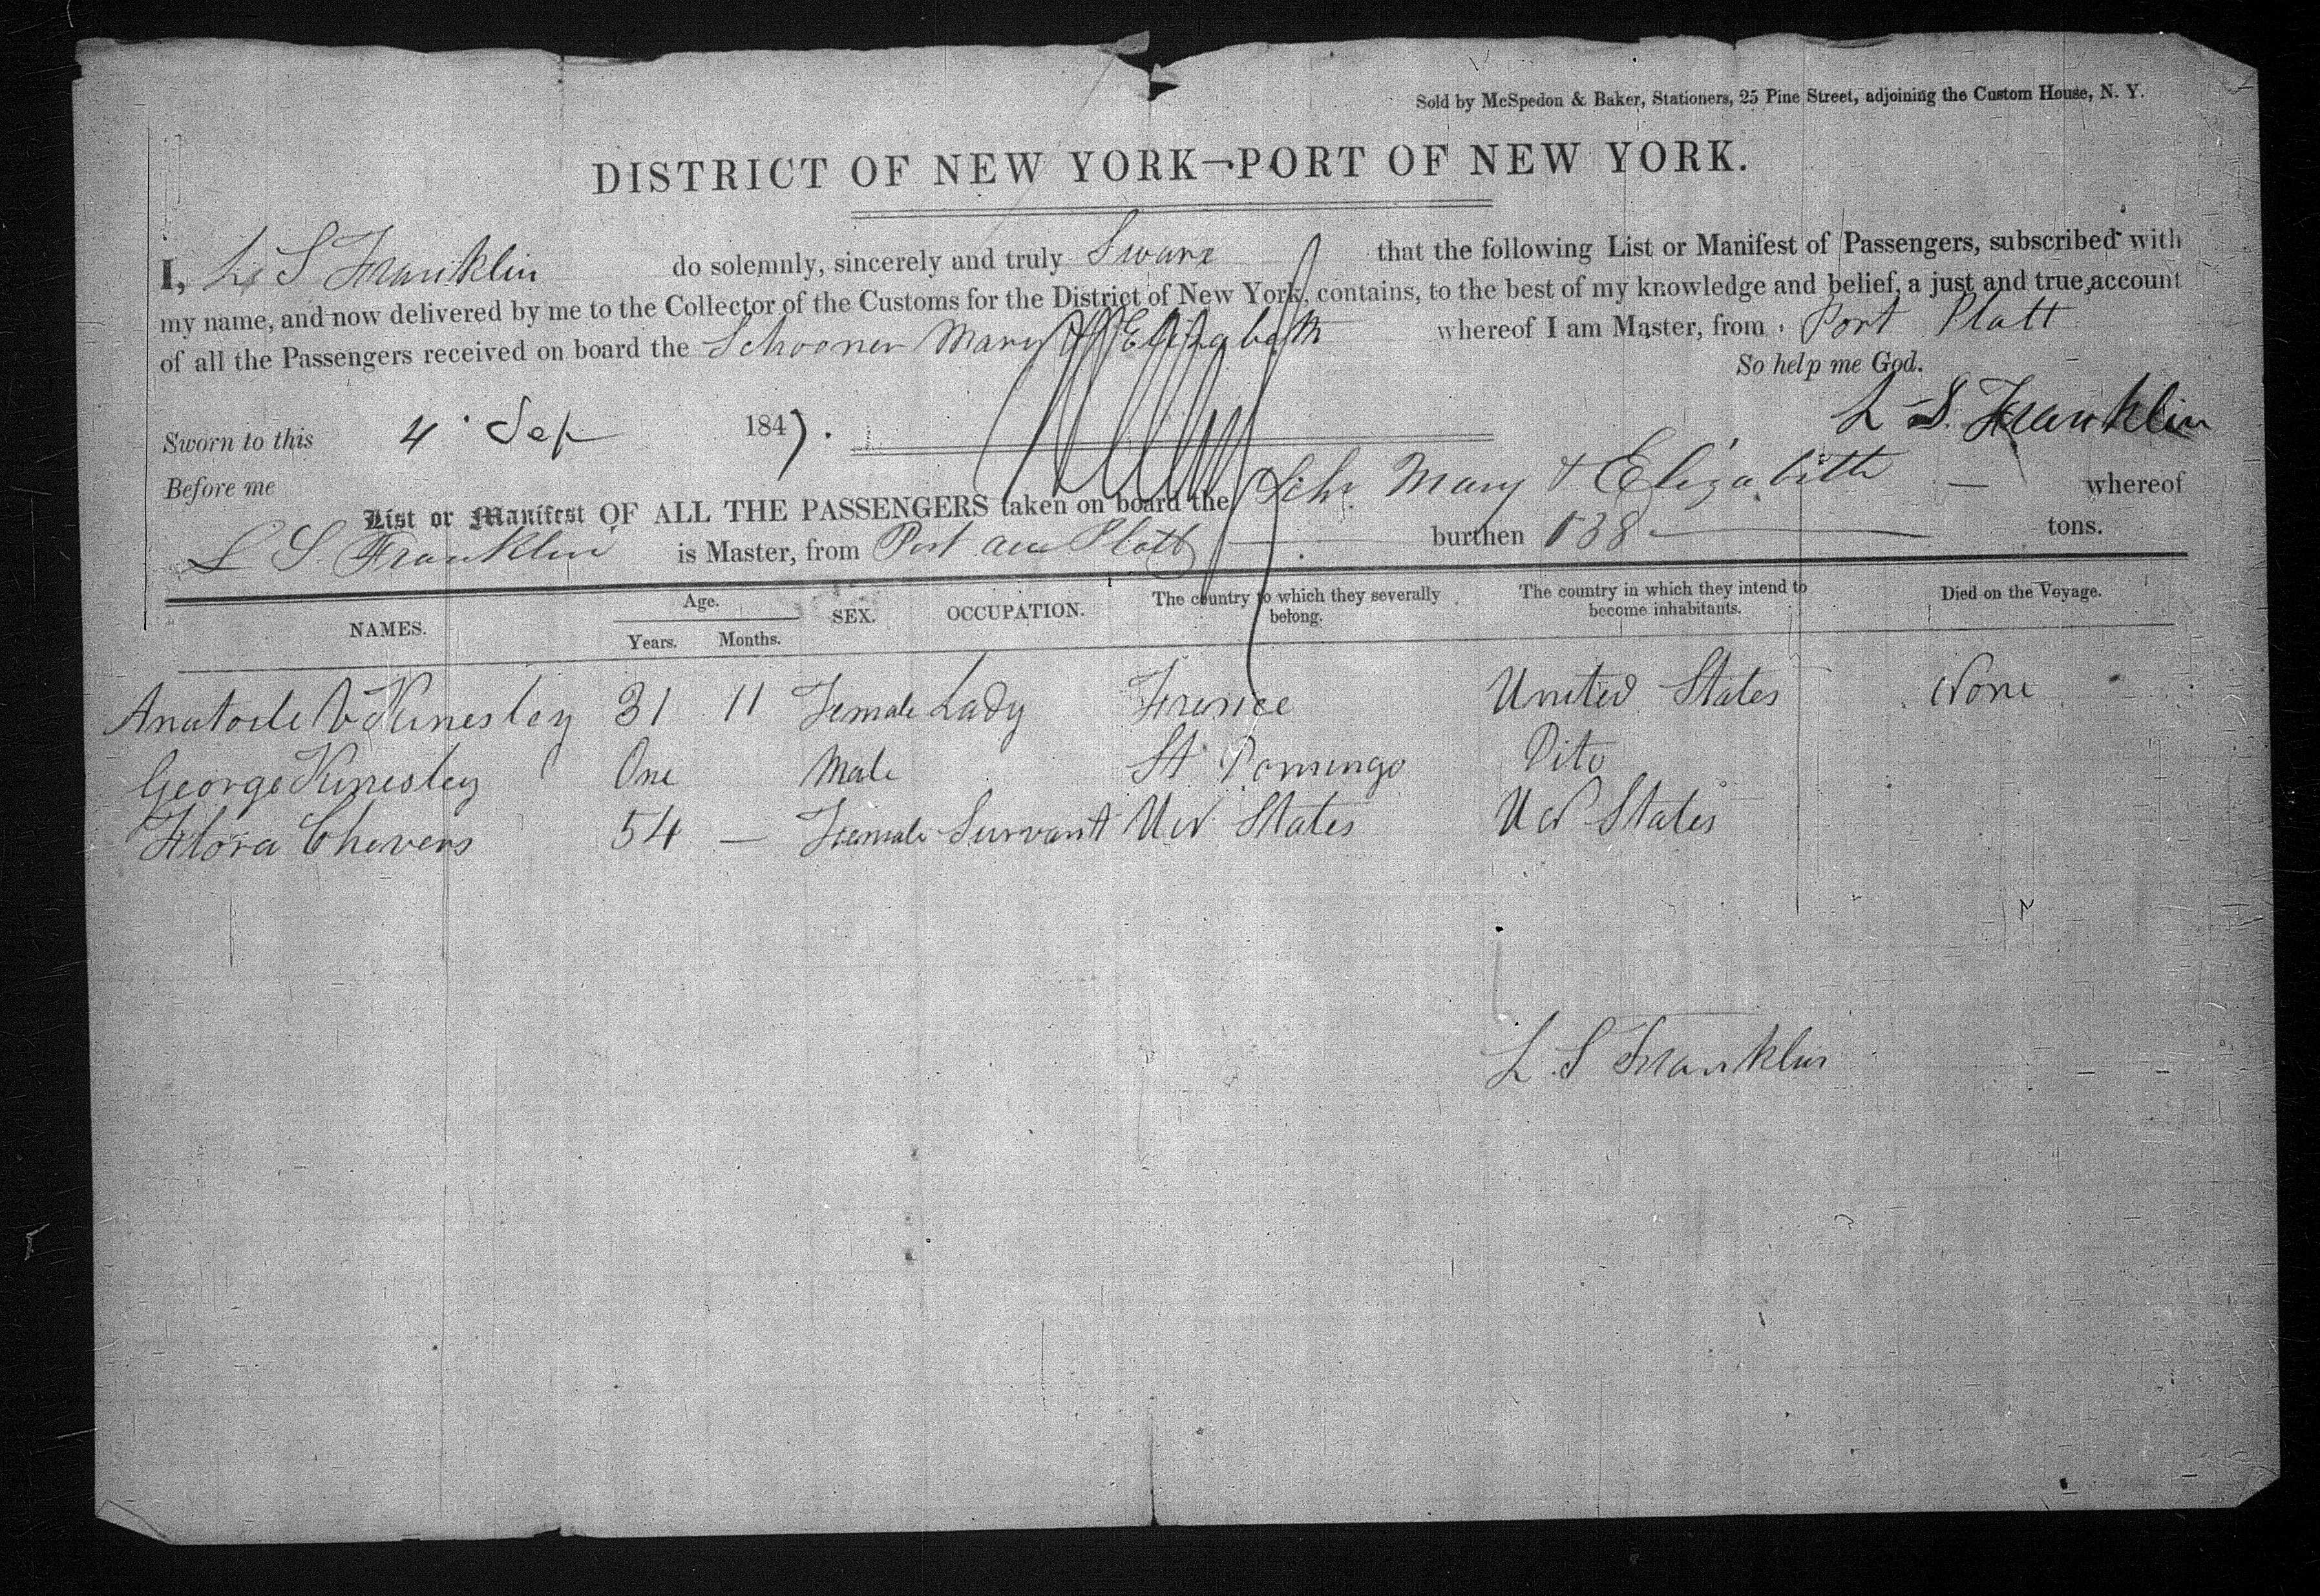 Sold by McSpedon & Baker, Stationers, 25 Pine Street, adjoining the Custom House, N. Y.
DISTRICT OF NEW YORK—PORT OF NEW YORK.
I, L S Franklin do solemnly, sincerely and truly Sware that the following List or Manifest of Passengers, subscribed with
my name, and now delivered by me to the Collector of the Customs for the District of New York, contains, to the best of my knowledge and belief, a just and true account
of all the Passengers received on board the Schooner Mary & Elizabeth whereof I am Master, from Port Platt
So help me God.
L S. Franklin
Sworn to this 4 Sep 1847.
Before me
List or Manifest OF ALL THE PASSENGERS taken on board the Schr Mary & Elizabeth — whereof
L S Franklin is Master, from Port Platt burthen 138 tons.
NAMES. Age. Years. Months. SEX. OCCUPATION. The country to which they severally belong. The country in which they intend to become inhabitants. Died on the Voyage.
Kinesley 31 11 Female Lady France United States None
George Kinesley One Male St Domingo Dito
Flora Chevers 54 — Female Survant Ud States Ud States
L. S Franklin